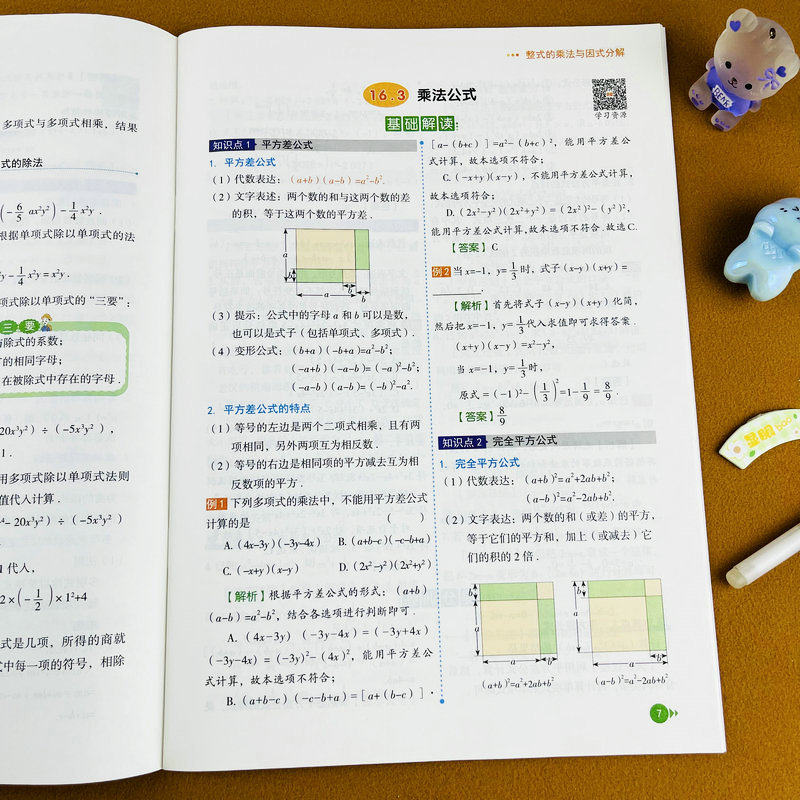 多项式与多项式相乘，结果
式的除法
(-6/5 ax²y²)-1/4x²y .
根据单项式除以单项式的法
y-1/4x²y=x²y .
项式除以单项式的“三要”：
三 要
与除式的系数；
的相同字母；
在被除式中存在的字母 .
20x³y²）÷（-5x³y²），
1 .
用多项式除以单项式法则
值代入计算 .
- 20x³y²）÷（-5x³y²）
1 代入，
2×(-1/2)×1²+4
式是几项，所得的商就
式中每一项的符号，相除
整式的乘法与因式分解
16.3 乘法公式
学习资源
基础解读：
知识点 1 平方差公式
1. 平方差公式
（1）代数表达：（a+b）（a-b）=a²-b².
（2）文字表述：两个数的和与这两个数的差
的积，等于这两个数的平方差 .
a
b
b
a
（3）提示：公式中的字母 a 和 b 可以是数，
也可以是式子（包括单项式、多项式）.
（4）变形公式：（b+a）（-b+a）=a²-b²；
（-a+b）（-a-b）=（-a）²-b²；
（-a-b）（a-b）=（-b）²-a².
2. 平方差公式的特点
（1）等号的左边是两个二项式相乘，且有两
项相同，另外两项互为相反数 .
（2）等号的右边是相同项的平方减去互为相
反数项的平方 .
例 1 下列多项式的乘法中，不能用平方差公式
计算的是 （ ）
A.（4x-3y）（-3y-4x） B.（a+b-c）（-c-b+a）
C.（-x+y）（x-y） D.（2x²-y²）（2x²+y²）
【解析】根据平方差公式的形式：（a+b）
（a-b）=a²-b²，结合各选项进行判断即可 .
A.（4x-3y）（-3y-4x）=（-3y+4x）
（-3y-4x）=（-3y）²-（4x）²，能用平方差公
式计算，故本选项不符合；
B.（a+b-c）（-c-b+a）=［a+（b-c）］·
［a-（b+c）］=a²-（b+c）²，能用平方差公
式计算，故本选项不符合；
C.（-x+y）（x-y），不能用平方差公式计算，
故本选项符合；
D.（2x²-y²）（2x²+y²）=（2x²）²-（y²）²，
能用平方差公式计算，故本选项不符合.故选C.
【答案】C
例 2 当 x=-1，y=1/3时，式子（x-y）（x+y）=
________ .
【解析】首先将式子（x-y）（x+y）化简，
然后把 x=-1，y=1/3代入求值即可求得答案 .
（x+y）（x-y）=x²-y²，
当 x=-1，y=1/3时，
原式=（-1）²-(1/3)²=1-1/9=8/9 .
【答案】8/9
知识点 2 完全平方公式
1. 完全平方公式
（1）代数表达：（a+b）²=a²+2ab+b²；
（a-b）²=a²-2ab+b².
（2）文字表述：两个数的和（或差）的平方，
等于它们的平方和，加上（或减去）它
们的积的 2 倍 .
b
a
a
b
b
a
b
a
（a+b）²=a²+2ab+b²
（a-b）²=a²-2ab+b²
7